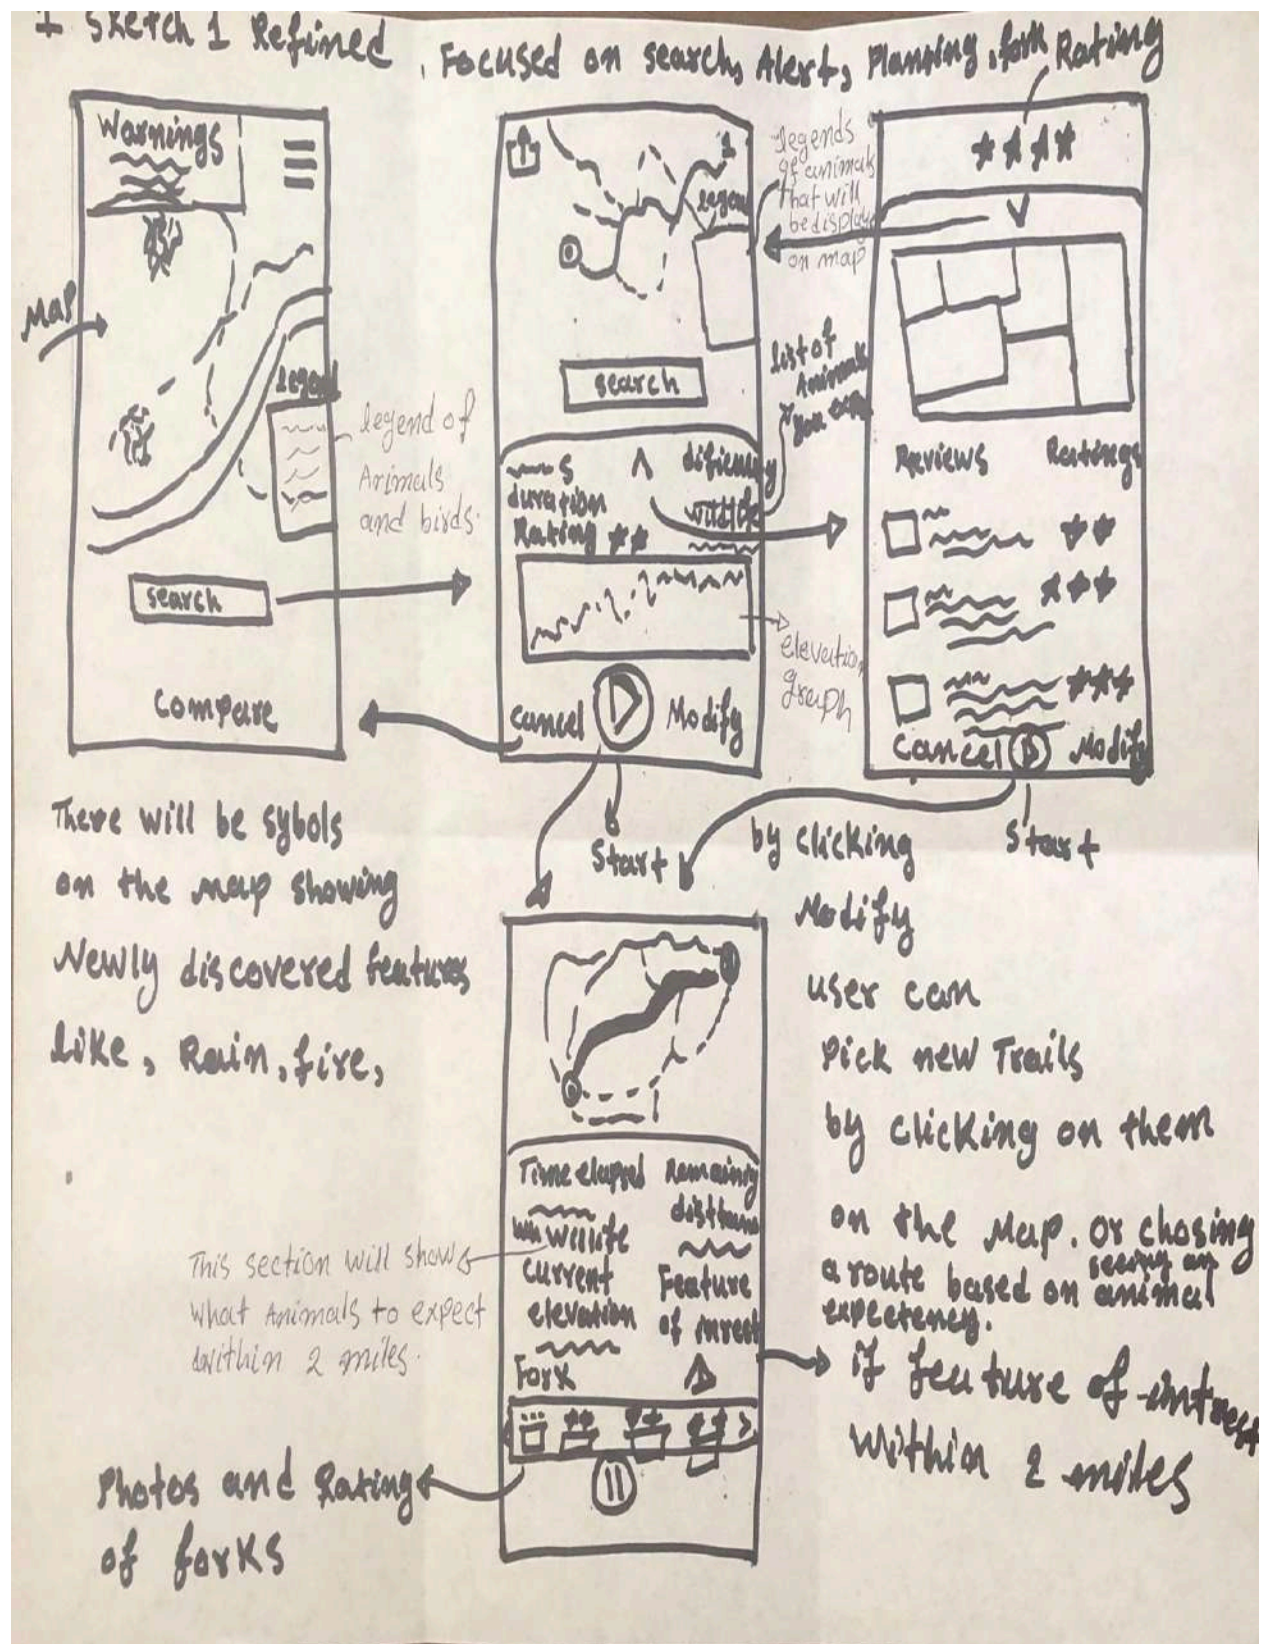 Sketch 1 Refined , Focused on search, Alert, Planning, fork Rating
Warnings
Map
legend
legend of
Animals
and birds.
search
Compare
legend
legends
of animals
that will
be display
on map
search
list of
Animals
you
S
duration
Rating
dificulty
elevation
graph
Cancel
Modify
Start
Reviews
Ratings
Cancel
Modify
Start
There will be sybols
on the map showing
Newly discovered features
like, Rain, fire,
by clicking
Modify
user can
Pick new Trails
by clicking on them
on the Map. or chosing
a route based on seeing an animal
expectency.
Time elapsed
Remaining
distan
current
elevation
Feature
of
Fork
This section will show
what Animals to expect
within 2 miles.
if feature of intrest
within 2 miles
Photos and Rating
of forks